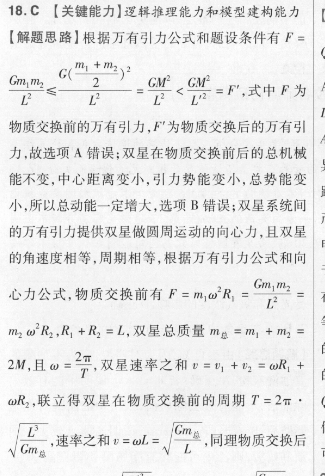 18. C 【关键能力】逻辑推理能力和模型建构能力
【解题思路】根据万有引力公式和题设条件有 F =
Gm₁m₂/L² ≤ G((m₁ + m₂)/2)²/L² = GM²/L² < GM²/L'² = F', 式中 F 为
物质交换前的万有引力,F'为物质交换后的万有引
力,故选项 A 错误;双星在物质交换前后的总机械
能不变,中心距离变小,引力势能变小,总势能变
小,所以总动能一定增大,选项 B 错误;双星系统间
的万有引力提供双星做圆周运动的向心力,且双星
的角速度相等,周期相等,根据万有引力公式和向
心力公式,物质交换前有 F = m₁ω²R₁ = Gm₁m₂/L² =
m₂ω²R₂,R₁ + R₂ = L,双星总质量 m总 = m₁ + m₂ =
2M,且 ω = 2π/T,双星速率之和 v = v₁ + v₂ = ωR₁ +
ωR₂,联立得双星在物质交换前的周期 T = 2π ·
√(L³/Gm总),速率之和 v = ωL = √(Gm总/L),同理物质交换后